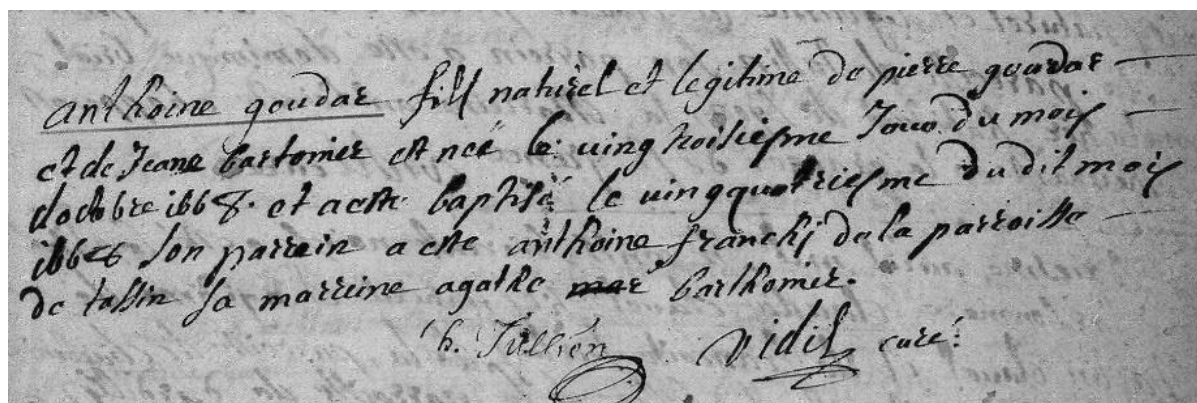 anthoine goudar fils naturel et legitime de pierre goudar
et de Jeane bartomier est née le vingtroisiesme Jour du mois
doctobre 1668. et a este baptisé le vingquatriesme du dit mois
1668 son parrein a este anthoine franchj de la parroisse
de tassin sa marreine agathe barthomier.
h. Jullien Vidil curé.